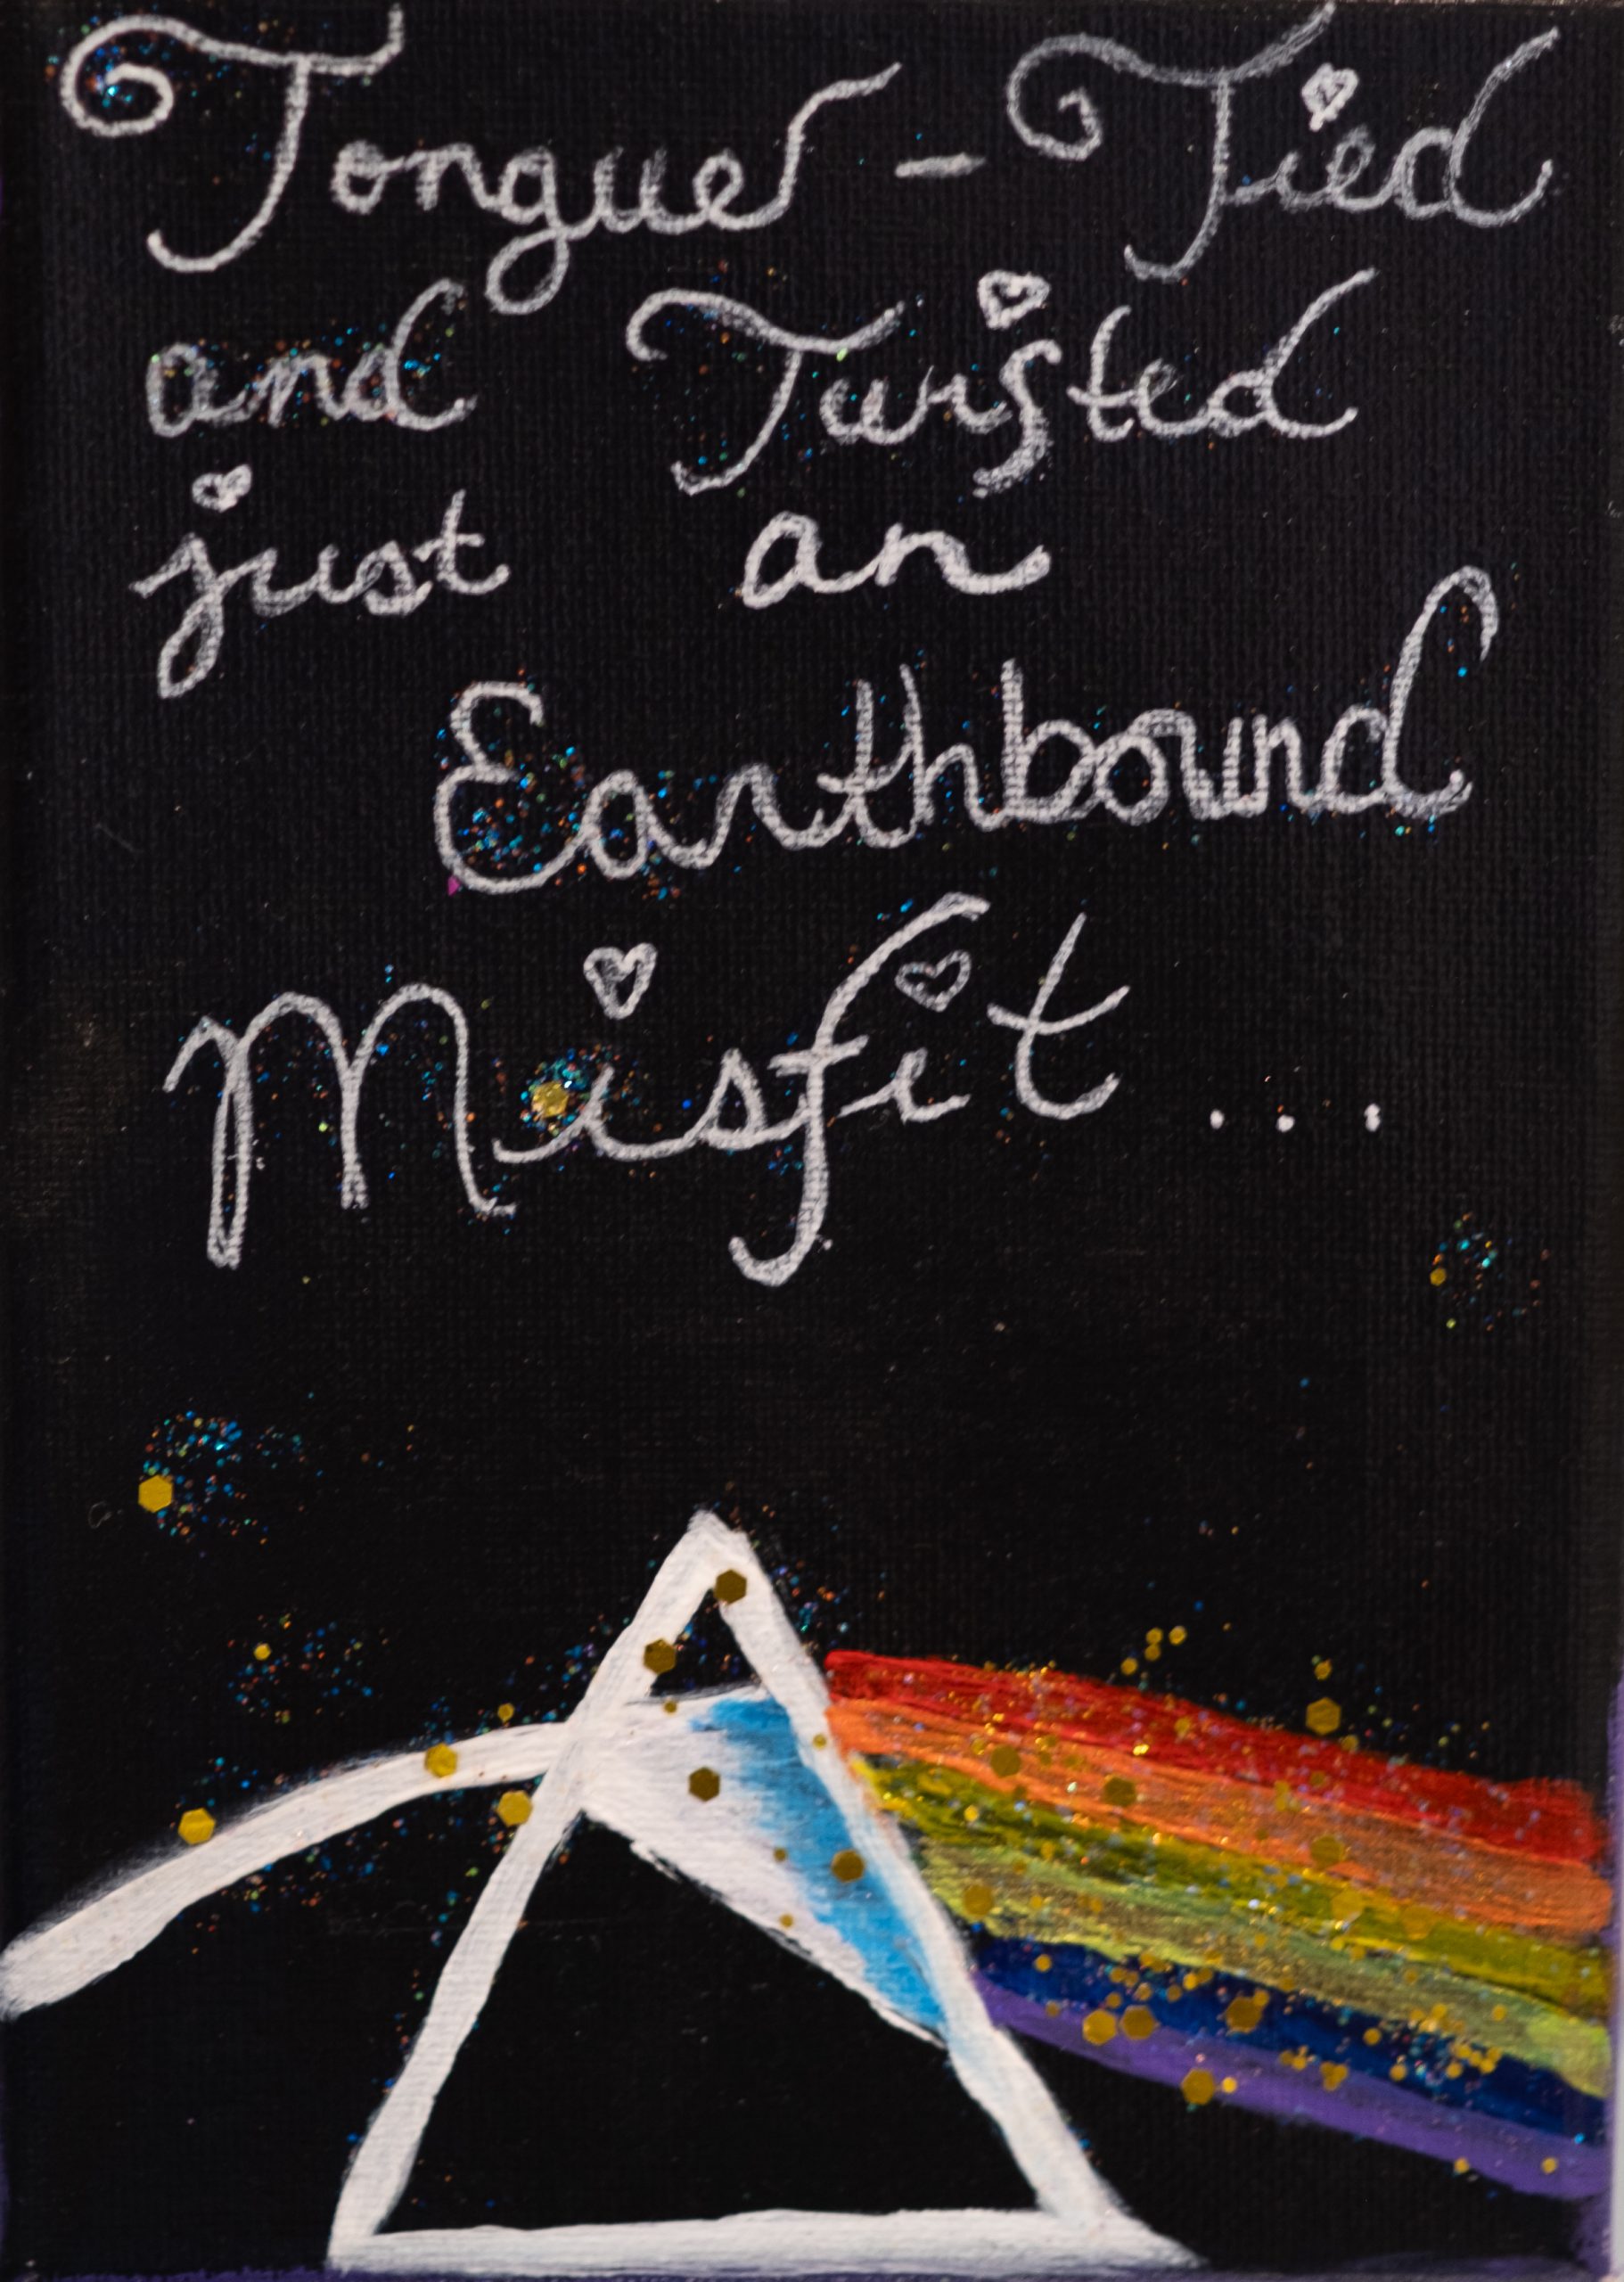 Tongue - Tied
and Twisted
just an
Earthbound
Misfit...